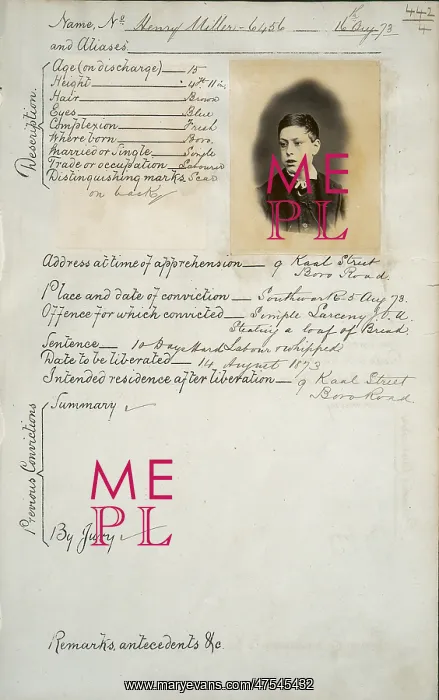 Name, No. Henry Miller - 6456 16 Aug 73 442/4
and Aliases
Description.
Age (on discharge) 15
Height 4 ft 11 in
Hair Brown
Eyes Blue
Complexion Fresh
Where born Boro.
Married or Single Single
Trade or occupation Labourer
Distinguishing marks Scar
on back
ME
PL
Address at time of apprehension 9 Kaal Street
Boro Road.
Place and date of conviction Southwark. 5 Aug 73.
Offence for which convicted Simple Larceny J.O.A.
Stealing a loaf of Bread
Sentence 10 Days Hard Labour & whipped
Date to be liberated 14 August 1873
Intended residence after liberation 9 Kaal Street
Boro Road.
Previous Convictions
Summary
ME
PL
By Jury
Remarks, antecedents &c.
www.maryevans.com/47545432